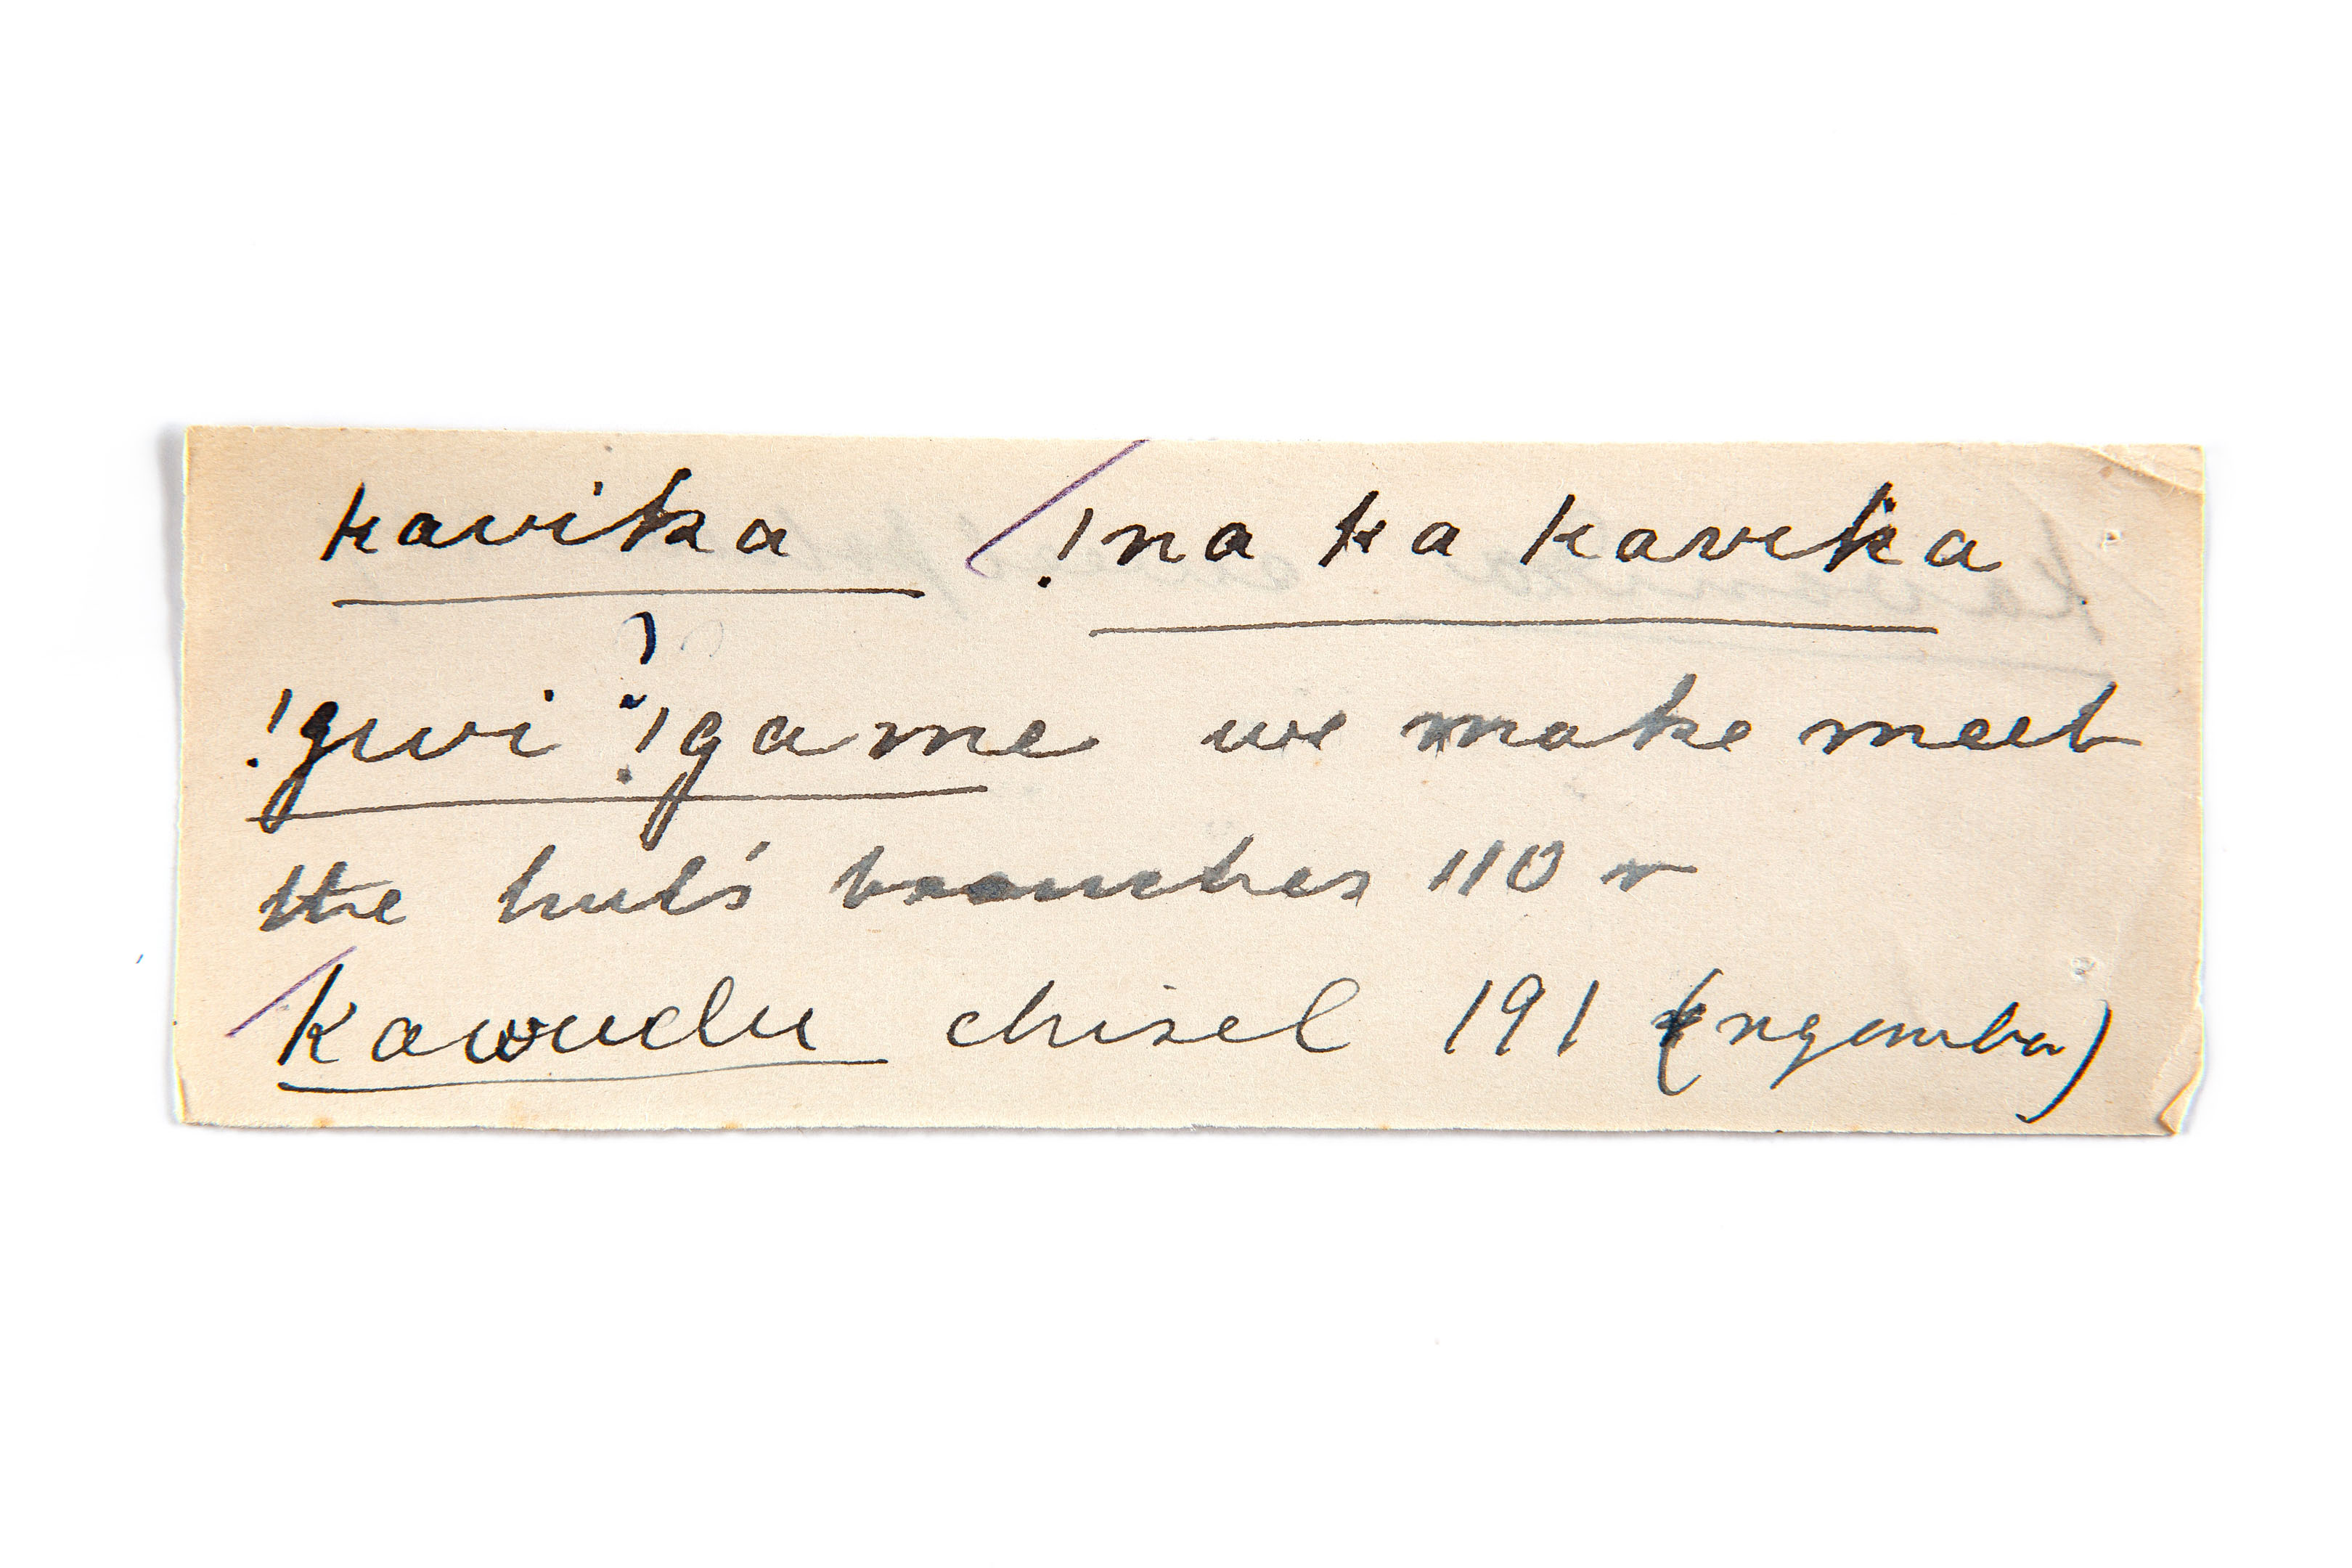 kavika !na ka kavika
!gwi !game we make meet
the hut's branches 110 r
Kawudu chisel 191 (ngomba)